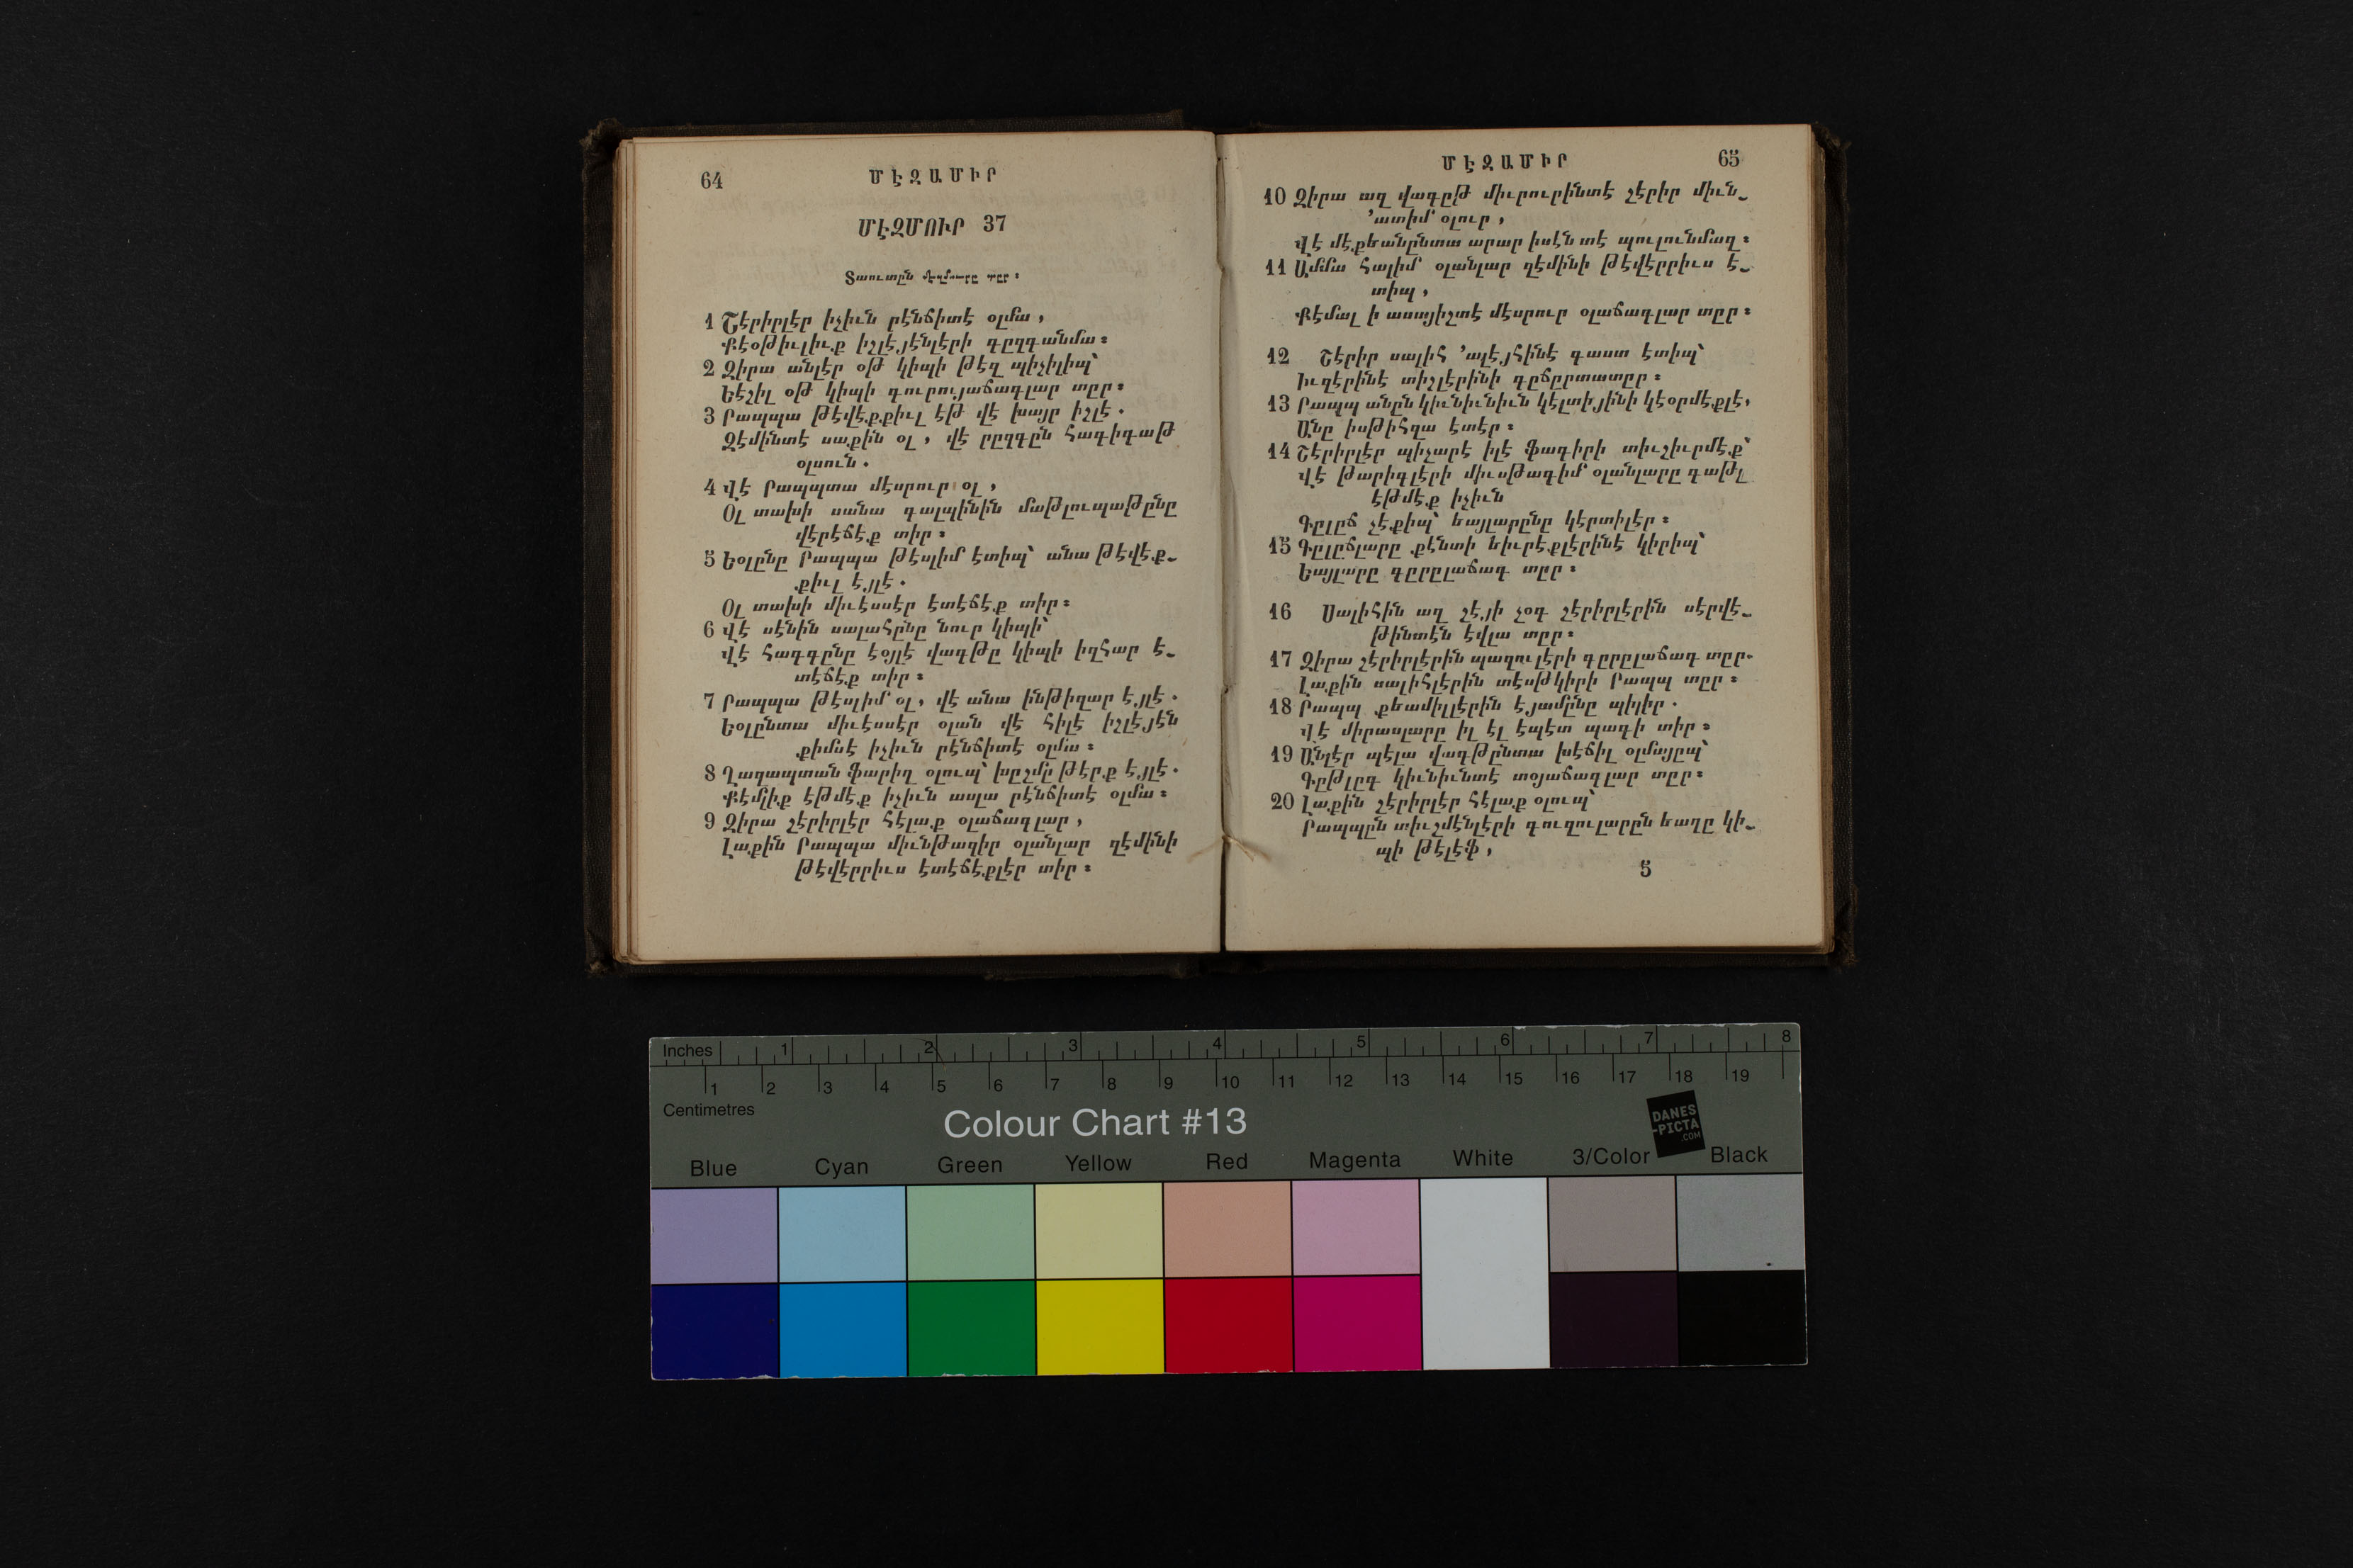 64
ՄԷԶԱՄԻՐ
ՄԷԶՄՈՒՐ 37
Տաուտըն մէզմուրը տըր ։
1 Շէրիրլէր իչիւն րէնճիտէ օլմա ,
Քէօթիւլիւք իշլէյէնլէրի գըզգանմա ։
2 Զիրա անլէր օթ կիպի թէզ պիչիլիպ՝
Եէշիլ օթ կիպի գուրույաճագլար տըր ։
3 Րապպա թէվէքքիւլ էթ վէ խայր իշլէ .
Զէմինտէ սաքին օլ , վէ րըզգըն հագիգաթ
օլսուն .
4 Վէ Րապպտա մէսրուր օլ ,
Օլ տախի սանա գալպինին մաթլուպաթընը
վէրէճէք տիր ։
5 Եօլընը Րապպա թէսլիմ էտիպ՝ անա թէվէք-
քիւլ էյլէ .
Օլ տախի միւէսսէր էտէճէք տիր ։
6 Վէ սէնին սալահընը նուր կիպի՝
Վէ հագգընը էօյլէ վագթը կիպի իզհար է-
տէճէք տիր ։
7 Րապպա թէսլիմ օլ , վէ անա ինթիզար էյլէ .
Եօլընտա միւէսսէր օլան վէ հիլէ իշլէյէն
քիմսէ իչիւն րէնճիտէ օլմա ։
8 Ղազապտան ֆարիղ օլուպ՝ խըշմը թէրք էյլէ .
Քէմլիք էթմէք իչիւն ասլա րէնճիտէ օլմա ։
9 Զիրա շէրիրլէր հէլաք օլաճագլար ,
Լաքին Րապպա միւնթազիր օլանլար զէմինի
թէվէրրիւս էտէճէքլէր տիր ։
ՄԷԶԱՄԻՐ
65
10 Զիրա ազ վագըթ միւրուրինտէ շէրիր միւն-
՚ատիմ օլուր ,
Վէ մէքեանընտա արար իսէն տէ պուլունմազ ։
11 Ամմա հալիմ օլանլար զէմինի թէվէրրիւս է-
տիպ ,
Քէմալ ի ասայիշտէ մէսրուր օլաճագլար տըր ։
12 Շէրիր սալիհ ՚ալէյհինէ գաստ էտիպ՝
Իւզէրինէ տիշլէրինի գըճըրտատըր ։
13 Րապպ անըն կիւնիւնիւն կէլտիյինի կէօրմէքլէ ,
Անը իսթիհզա էտէր ։
14 Շէրիրլէր պիչարէ իլէ ֆագիրի տիւշիւրմէք՝
Վէ թարիգլէրի միւսթագիմ օլանլարը գաթլ
էթմէք իչիւն
Գըլըճ չէքիպ՝ եայլարընը կէրտիլէր ։
15 Գըլըճլարը քէնտի եիւրէքլէրինէ կիրիպ՝
Եայլարը գըրըլաճագ տըր ։
16 Սալիհին ազ շէյի չօգ շէրիրլէրին սէրվէ-
թինտէն էվլա տըր ։
17 Զիրա շէրիրլէրին պազուլէրի գըրըլաճագ տըր .
Լաքին սալիհլէրին տէսթկիրի Րապպ տըր ։
18 Րապպ քեամիլլէրին էյամընը պիլիր .
Վէ միրասլարը իլ էլ էպէտ պագի տիր ։
19 Անլէր պէլա վագթընտա խէճիլ օլմայըպ՝
Գըթլըգ կիւնիւնտէ տօյաճագլար տըր ։
20 Լաքին շէրիրլէր հէլաք օլուպ՝
Րապպըն տիւշմէնլէրի գուզուլարըն եաղը կի-
պի թէլէֆ ,
5
Inches 1 2 3 4 5 6 7 8
1 2 3 4 5 6 7 8 9 10 11 12 13 14 15 16 17 18 19
Centimetres
Colour Chart #13
DANES
-PICTA
.COM
Blue Cyan Green Yellow Red Magenta White 3/Color Black